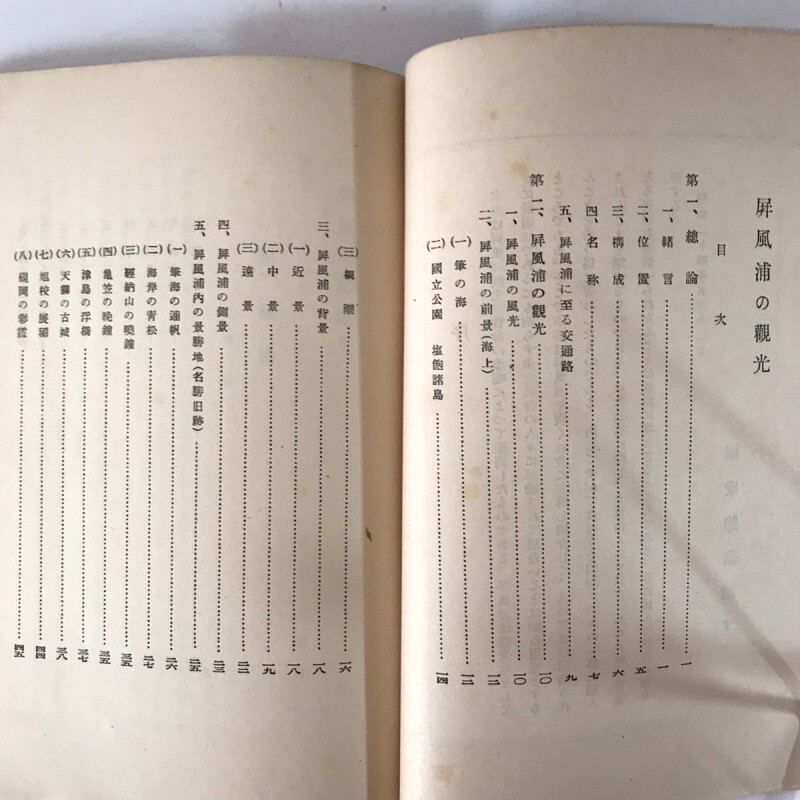 屛風浦の觀光
目次
第一、總論……一
一、緖言……一
二、位置……五
三、構成……六
四、名称……七
五、屛風浦に至る交通路……九
第二、屛風浦の觀光……一〇
一、屛風浦の風光……一〇
二、屛風浦の前景(海上)……一二
(一)筆の海……一二
(二)國立公園 塩飽諸島……一四
(三)觀潮……一六
三、屛風浦の背景……一八
(一)近景……一八
(二)中景……一九
(三)遠景……二二
四、屛風浦の側景……二三
五、屛風浦內の景勝地(名勝旧跡)……二五
(一)筆海の連帆……二六
(二)海岸の靑松……二七
(三)經納山の曉鐘……三五
(四)亀笠の晩鐘……三五
(五)津島の浮橋……三七
(六)天霧の古城……三八
(七)旭校の展望……四四
(八)硯岡の彩霞……四五